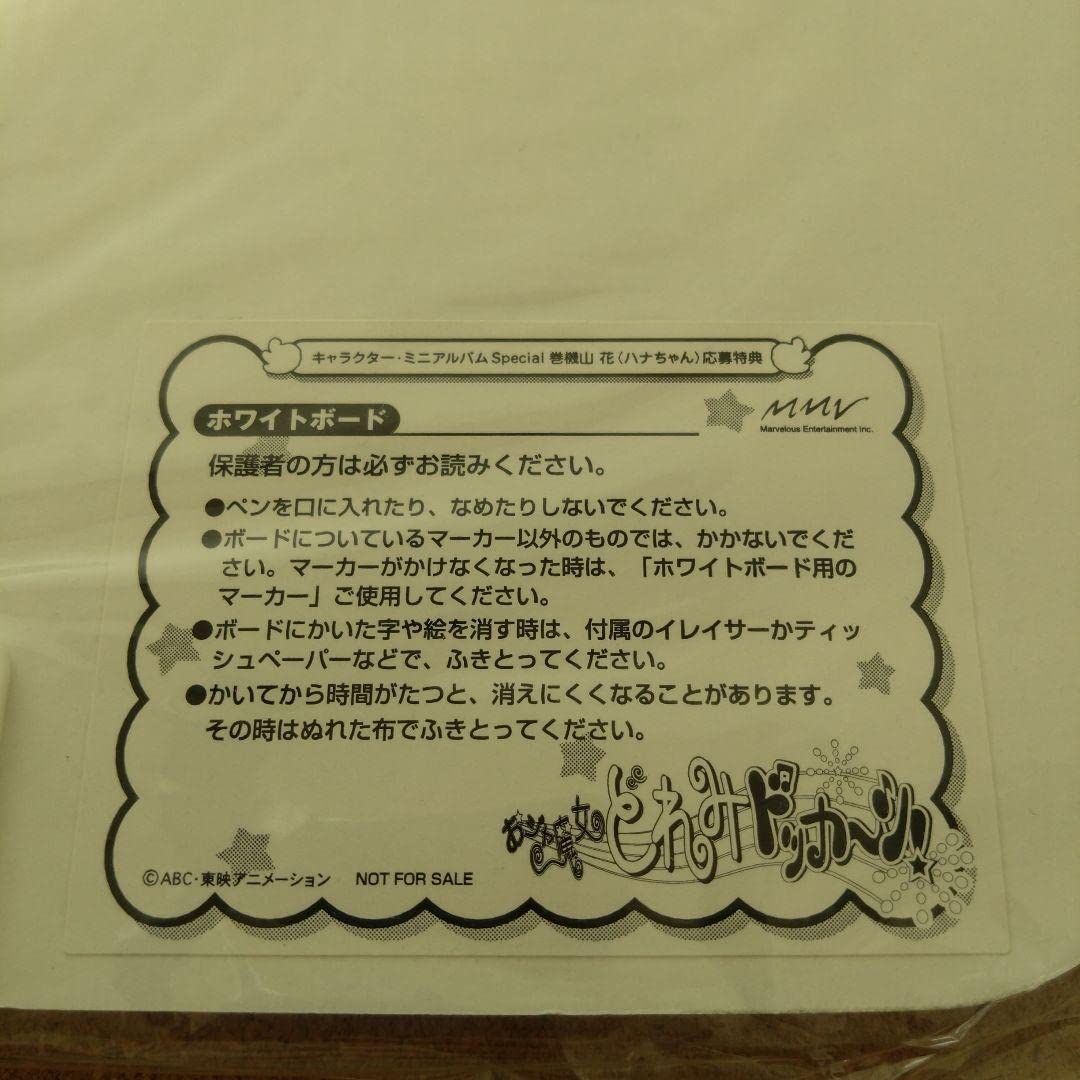 キャラクター・ミニアルバム Special 巻機山 花（ハナちゃん）応募特典
ホワイトボード
MMV
Marvelous Entertainment Inc.
保護者の方は必ずお読みください。
●ペンを口に入れたり、なめたりしないでください。
●ボードについているマーカー以外のものでは、かかないでくだ
さい。マーカーがかけなくなった時は、「ホワイトボード用の
マーカー」ご使用してください。
●ボードにかいた字や絵を消す時は、付属のイレイサーかティッ
シュペーパーなどで、ふきとってください。
●かいてから時間がたつと、消えにくくなることがあります。
その時はぬれた布でふきとってください。
おジャ魔女どれみドッカ〜ン!
©ABC・東映アニメーション NOT FOR SALE